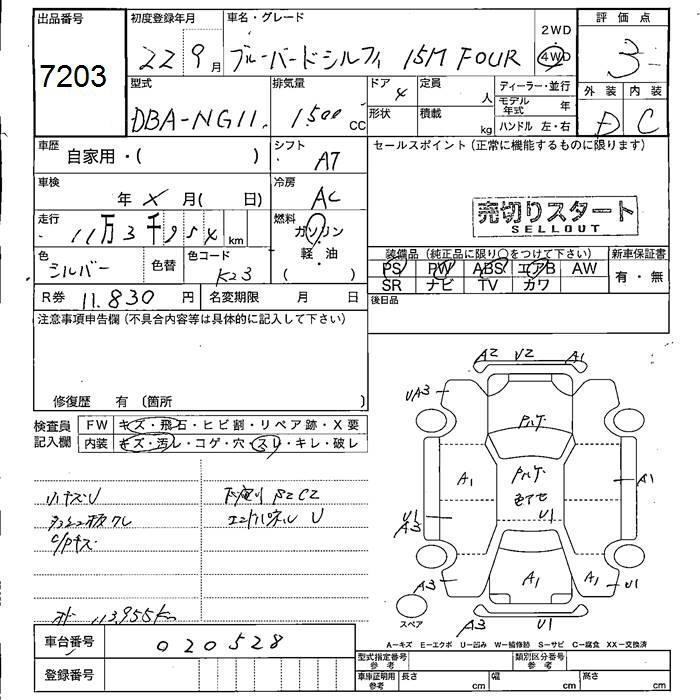 出品番号 初度登録年月 車名・グレード 2WD 評価点
7203 22 9月 ブルーバードシルフィ 15M FOUR 4WD 3
型式 排気量 ドア 定員 ディーラー・並行 外装 内装
DBA-NG11 1500cc 4 人 モデル年式 年 D C
形状 積載 kg ハンドル 左・右
車歴 自家用・( ) シフト AT セールスポイント(正常に機能するものに限ります)
車検 年 X 月( 日) 冷房 AC
売切りスタート
SELLOUT
走行 11万3千954km 燃料 ガソリン
軽・油
( )
色 シルバー 色替 色コード K23
装備品(純正品に限り○をつけて下さい) 新車保証書
PS PW ABS エアB AW 有・無
SR ナビ TV カワ
R券 11.830円 名変期限 月 日 後日品
注意事項申告欄(不具合内容等は具体的に記入して下さい)
修復歴 有(箇所 )
検査員記入欄 FW キズ・飛石・ヒビ割・リペア跡・X要
内装 キズ・汚レ・コゲ・穴・スレ・キレ・破レ
A2 V2 A1
UA3
A1 A1
U1
A3 U1
A3 A1 A1 U1
A3 U1
スペア
エンドパネル U
C/Pキズ
113,955Km
A-キズ E-エクボ U-凹み W-補修跡 S-サビ C-腐食 XX-交換済
車台番号 020528
登録番号
型式指定番号 参考 類別区分番号 参考
車庫証明用 参考 長さ cm 幅 cm 高さ cm